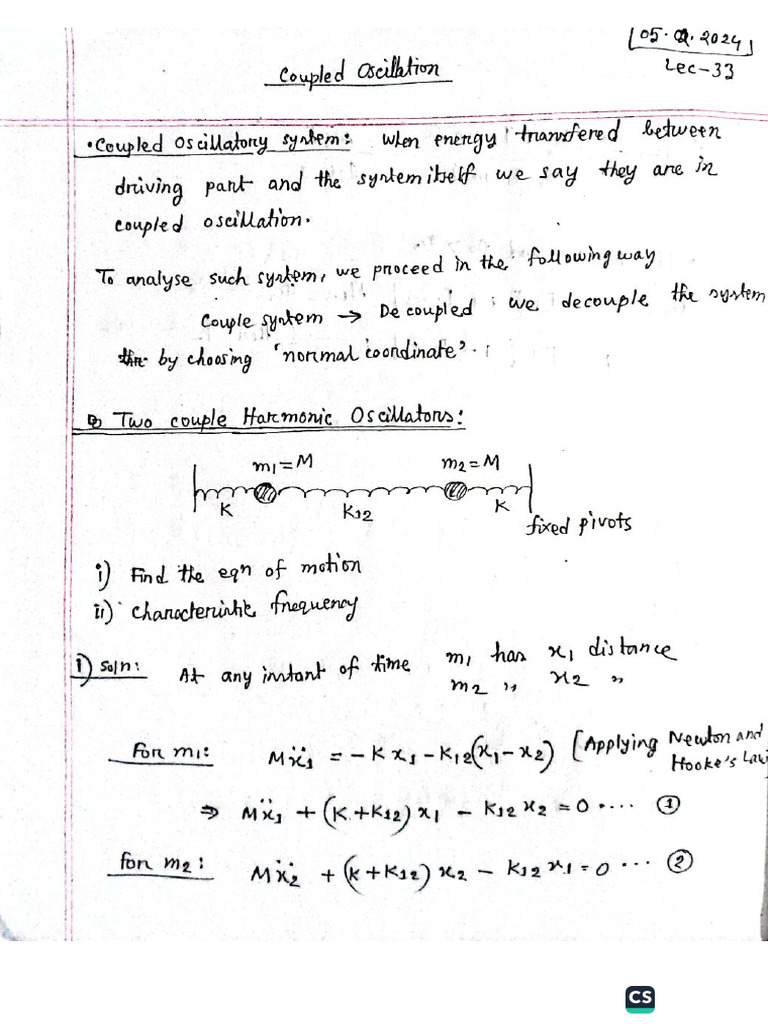 05.02.2024
Lec-33
Coupled Oscillation
•Coupled Oscillatory system: When energy transfered between
driving part and the system itself we say they are in
coupled oscillation.
To analyse such system, we proceed in the following way
Couple system → Decoupled : we decouple the system
by choosing 'normal coordinate'.
Two couple Harmonic Oscillators:
m₁=M m₂=M
K K₁₂ K
fixed pivots
i) Find the eqn of motion
ii) Characteristic frequency
i) Soln: At any instant of time m₁ has x₁ distance
m₂ " x₂ "
For m₁: Mẍ₁ = -Kx₁-K₁₂(x₁-x₂) [Applying Newton and
Hooke's Law]
⇒ Mẍ₁ + (K+K₁₂)x₁ - K₁₂x₂ = 0 .... ①
for m₂: Mẍ₂ + (K+K₁₂)x₂ - K₁₂x₁ = 0 ... ②
CS